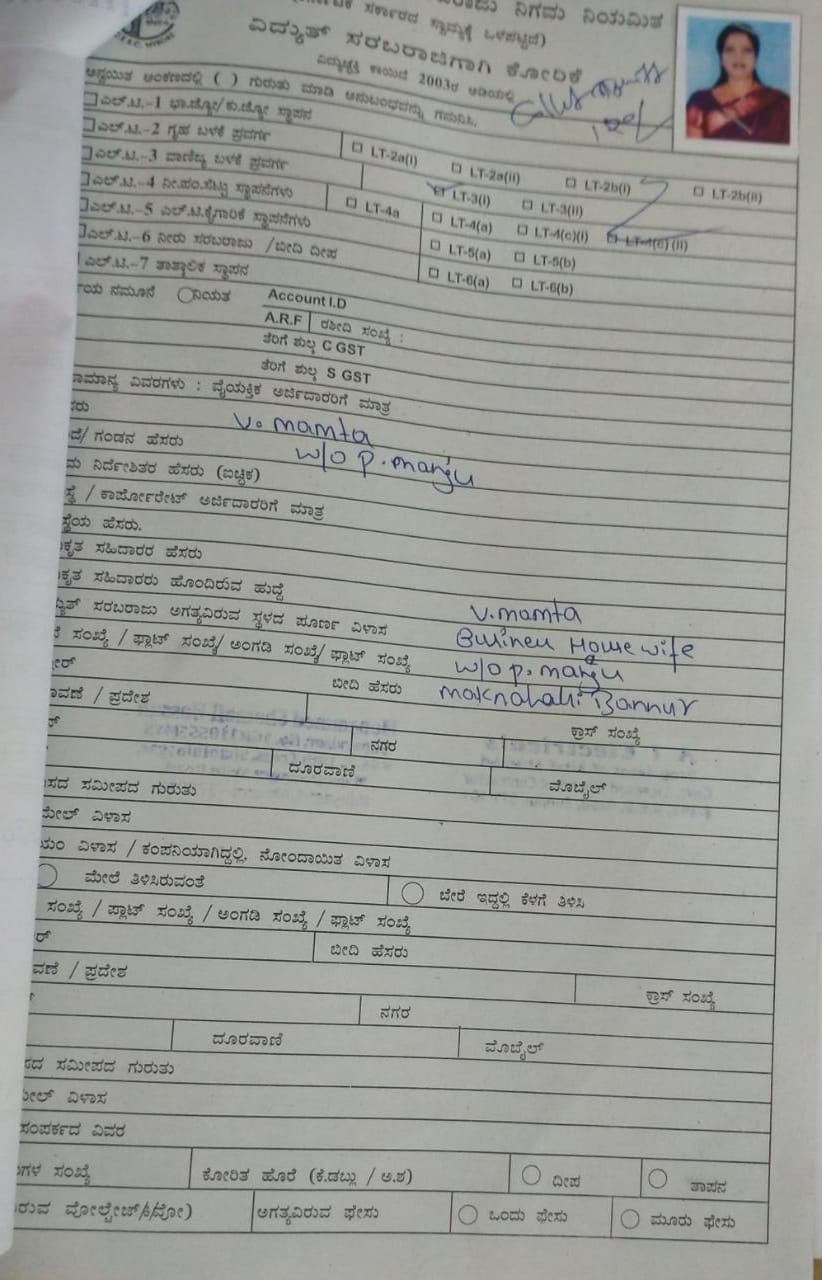 ನಿಗಮ ನಿಯಮಿತ
ಸರ್ಕಾರದ ಸ್ವಾಮ್ಯಕ್ಕೆ ಒಳಪಟ್ಟಿದೆ)
ವಿದ್ಯುತ್ ಸರಬರಾಜಿಗಾಗಿ ಕೋರಿಕೆ
ವಿದ್ಯುಚ್ಛಕ್ತಿ ಕಾಯಿದೆ 2003ರ ಅಡಿಯಲ್ಲಿ
ಅನ್ವಯಿತ ಅಂಕಣದಲ್ಲಿ ( ) ಗುರುತು ಮಾಡಿ ಅನುಬಂಧವನ್ನು ಗಮನಿಸಿ.
ಎಲ್.ಟಿ.-1 ಭಾ.ಜ್ಯೋ/ಕು.ಜ್ಯೋ ಸ್ಥಾಪನ
ಎಲ್.ಟಿ.-2 ಗೃಹ ಬಳಕೆ ಪ್ರವರ್ಗ LT-2a(i) LT-2a(ii) LT-2b(i) LT-2b(ii)
ಎಲ್.ಟಿ.-3 ವಾಣಿಜ್ಯ ಬಳಕೆ ಪ್ರವರ್ಗ LT-3(i) LT-3(ii)
ಎಲ್.ಟಿ.-4 ನೀ.ಪಂ.ಸೆಟ್ಟು ಸ್ಥಾಪನೆಗಳು LT-4a LT-4(a) LT-4(c)(i) LT-4(c)(ii)
ಎಲ್.ಟಿ.-5 ಎಲ್.ಟಿ.ಕೈಗಾರಿಕೆ ಸ್ಥಾಪನೆಗಳು LT-5(a) LT-5(b)
ಎಲ್.ಟಿ.-6 ನೀರು ಸರಬರಾಜು /ಬೀದಿ ದೀಪ LT-6(a) LT-6(b)
ಎಲ್.ಟಿ.-7 ತಾತ್ಕಾಲಿಕ ಸ್ಥಾಪನ
ನಮೂನೆ ನಿಯತ Account I.D
A.R.F ರಶೀದಿ ಸಂಖ್ಯೆ :
ತೆರಿಗೆ ಶುಲ್ಕ C GST
ತೆರಿಗೆ ಶುಲ್ಕ S GST
ವಿವರಗಳು : ವೈಯಕ್ತಿಕ ಅರ್ಜಿದಾರರಿಗೆ ಮಾತ್ರ
V. mamta
ಗಂಡನ ಹೆಸರು w/o p. manju
ನಿರ್ದೇಶಿತರ ಹೆಸರು (ಐಚ್ಛಿಕ)
/ ಕಾರ್ಪೋರೇಟ್ ಅರ್ಜಿದಾರರಿಗೆ ಮಾತ್ರ
ಹೆಸರು.
ಸಹಿದಾರರ ಹೆಸರು
ಸಹಿದಾರರು ಹೊಂದಿರುವ ಹುದ್ದೆ
ಸರಬರಾಜು ಅಗತ್ಯವಿರುವ ಸ್ಥಳದ ಪೂರ್ಣ ವಿಳಾಸ V. mamta
ಸಂಖ್ಯೆ / ಫ್ಲಾಟ್ ಸಂಖ್ಯೆ/ ಅಂಗಡಿ ಸಂಖ್ಯೆ/ ಫ್ಲಾಟ್ ಸಂಖ್ಯೆ House wife
ಬೀದಿ ಹೆಸರು w/o p. manju
/ ಪ್ರದೇಶ Bannur
ನಗರ ಕ್ರಾಸ್ ಸಂಖ್ಯೆ
ದೂರವಾಣಿ ಮೊಬೈಲ್
ಸಮೀಪದ ಗುರುತು
ವಿಳಾಸ
ವಿಳಾಸ / ಕಂಪನಿಯಾಗಿದ್ದಲ್ಲಿ. ನೋಂದಾಯಿತ ವಿಳಾಸ
ಮೇಲೆ ತಿಳಿಸಿರುವಂತೆ ಬೇರೆ ಇದ್ದಲ್ಲಿ ಕೆಳಗೆ ತಿಳಿಸಿ
ಸಂಖ್ಯೆ / ಪ್ಲಾಟ್ ಸಂಖ್ಯೆ / ಅಂಗಡಿ ಸಂಖ್ಯೆ / ಫ್ಲಾಟ್ ಸಂಖ್ಯೆ
ಬೀದಿ ಹೆಸರು
/ ಪ್ರದೇಶ ಕ್ರಾಸ್ ಸಂಖ್ಯೆ
ನಗರ
ದೂರವಾಣಿ ಮೊಬೈಲ್
ಸಮೀಪದ ಗುರುತು
ವಿಳಾಸ
ಸಂಪರ್ಕದ ವಿವರ
ಸಂಖ್ಯೆ ಕೋರಿತ ಹೊರೆ (ಕೆ.ಡಬ್ಲು / ಅ.ಶ) ದೀಪ ತಾಪನ
ಅಗತ್ಯವಿರುವ ಫೇಸು ಒಂದು ಫೇಸು ಮೂರು ಫೇಸು